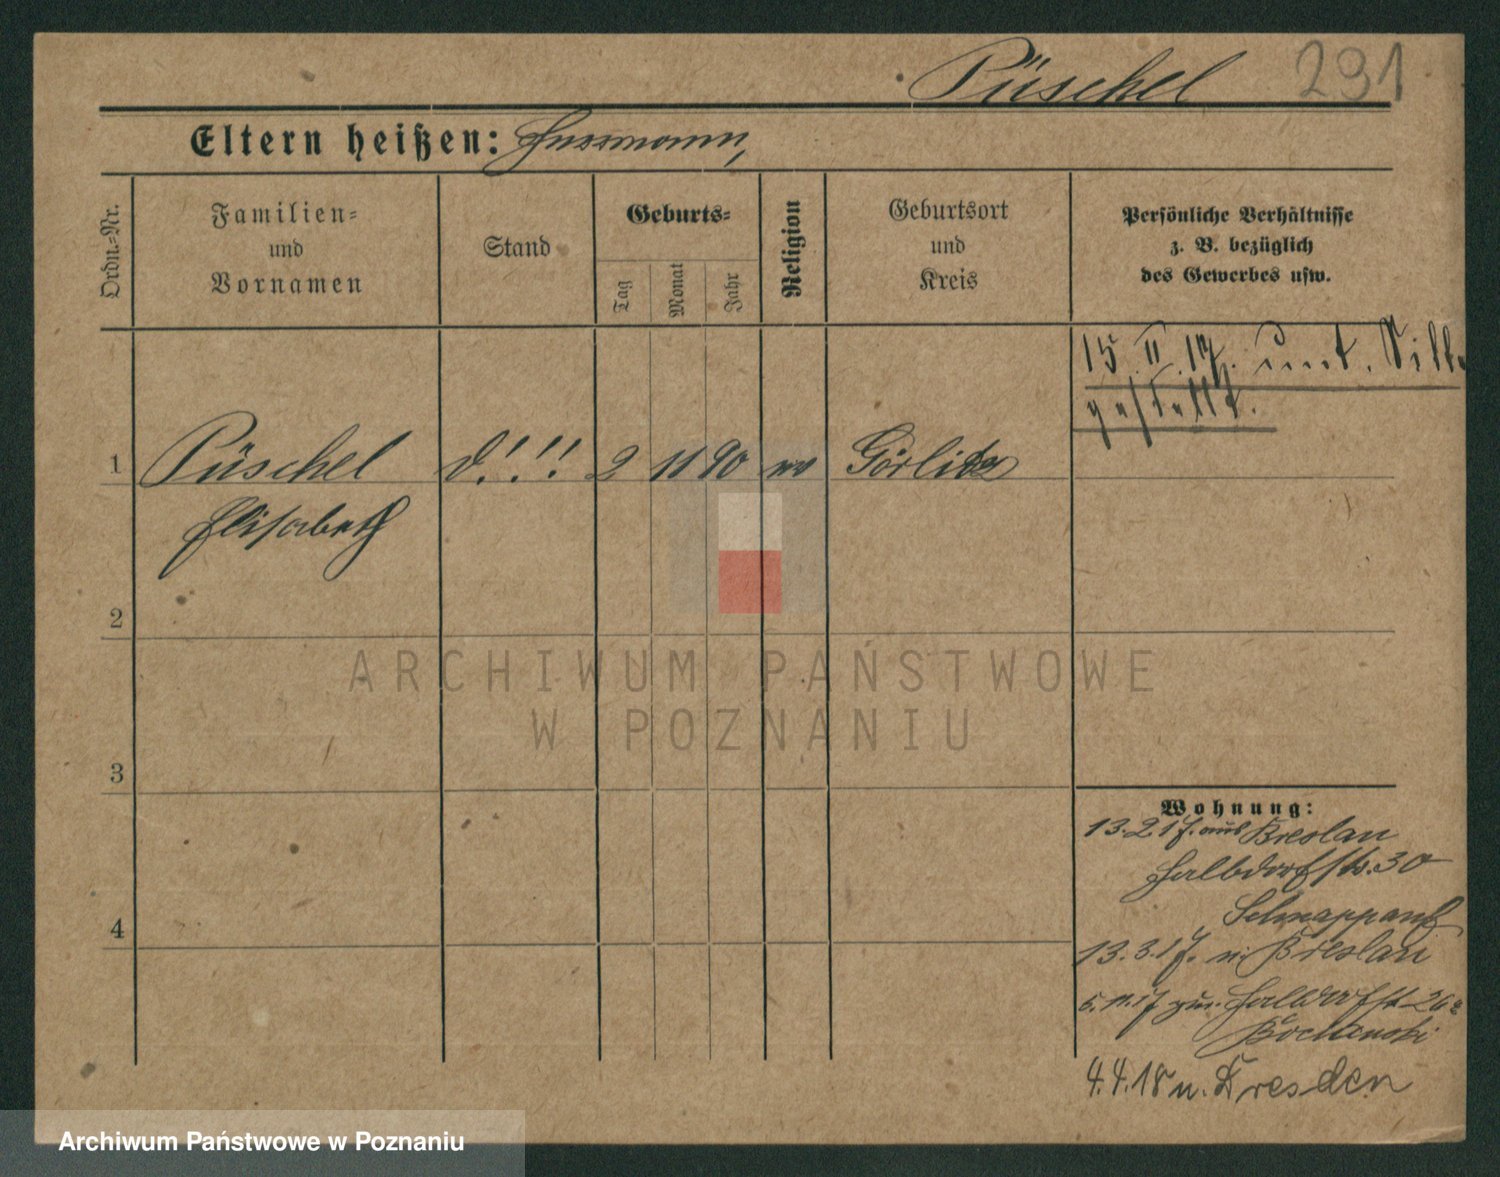 Püschel 291
Eltern heißen:
Ordn.-Nr.
Familien-
und
Vornamen
Stand
Geburts-
Tag
Monat
Jahr
Religion
Geburtsort
und
Kreis
Persönliche Verhältnisse
z. B. bezüglich
des Gewerbes usw.
15. II. 17.
gestellt.
1 Püschel 2 11 90 Görlitz
Elisabeth
2
3
4
Wohnung:
13.2.17. aus Breslau
Halbdorfstr. 30
Schnappauf
13.3.17. n. Breslau
5.11.17 zur. Halbdorfstr 26a
4.4.18 n. Dresden
ARCHIWUM PAŃSTWOWE
W POZNANIU
Archiwum Państwowe w Poznaniu